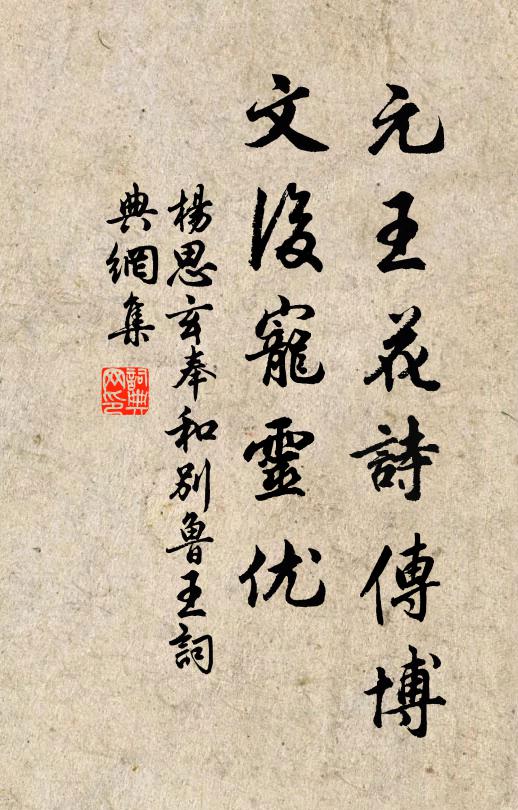 元王花詩傳博
文後寵靈优
楊思玄奉和別魯王詞
典網集
詞典網印